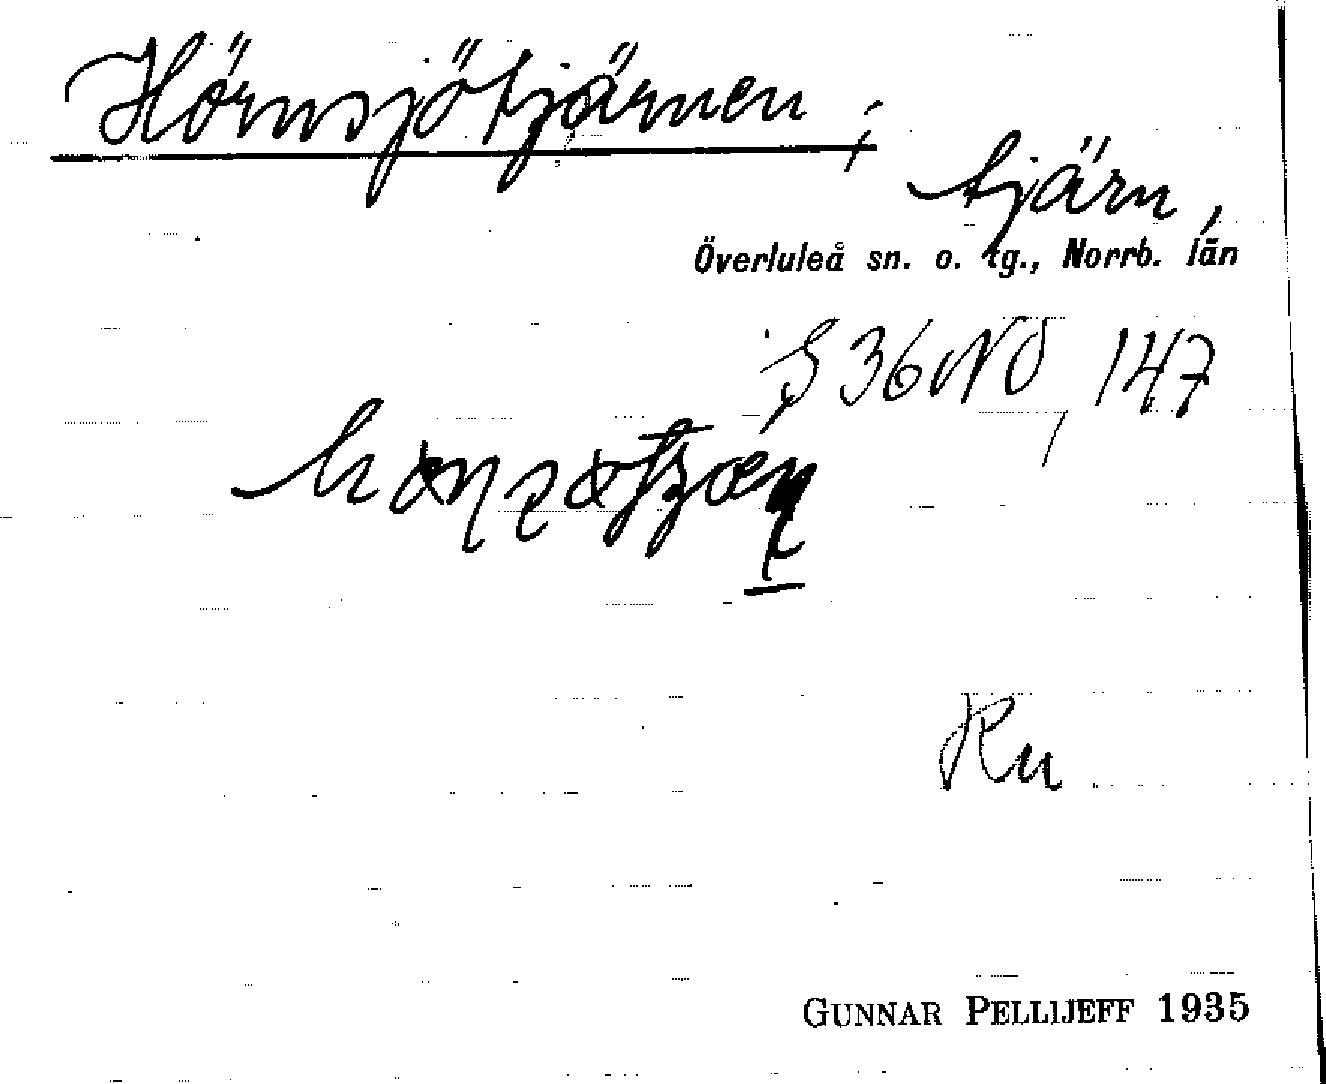 Hörnsjötjärnen ;
tjärn,
Överluleå sn. o. tg., Norrb. län
§ 36 NO, 147
Ru
GUNNAR PELLIJEFF 1935